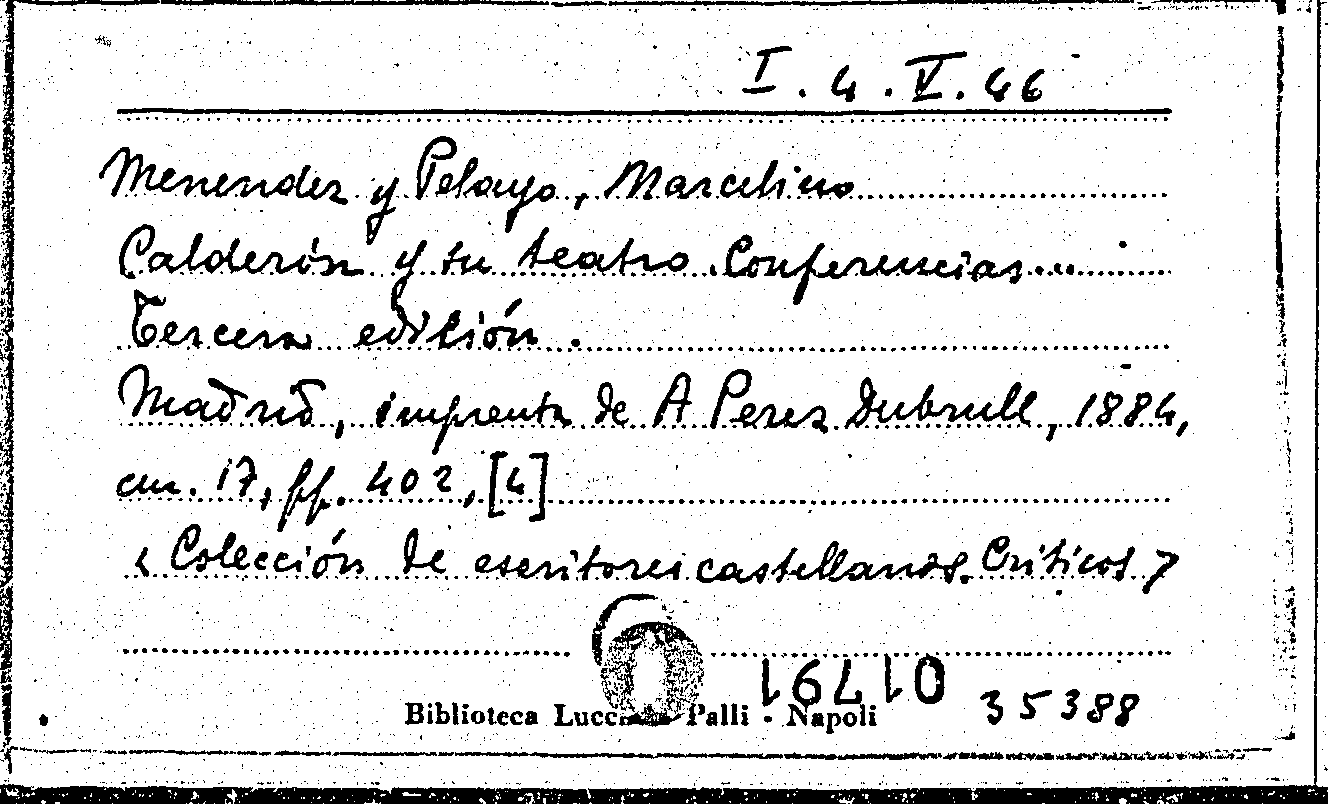 I. 4. V. 46
Menendez y Pelayo, Marcelino
Calderón y su teatro. Conferencias...
Tercera edición.
Madrid, imprenta de A Perez Dubrull, 1884,
cm. 17, pp. 402, [4]
< Colección de escritores castellanos. Críticos >
016791
35388
Biblioteca Palli - Napoli